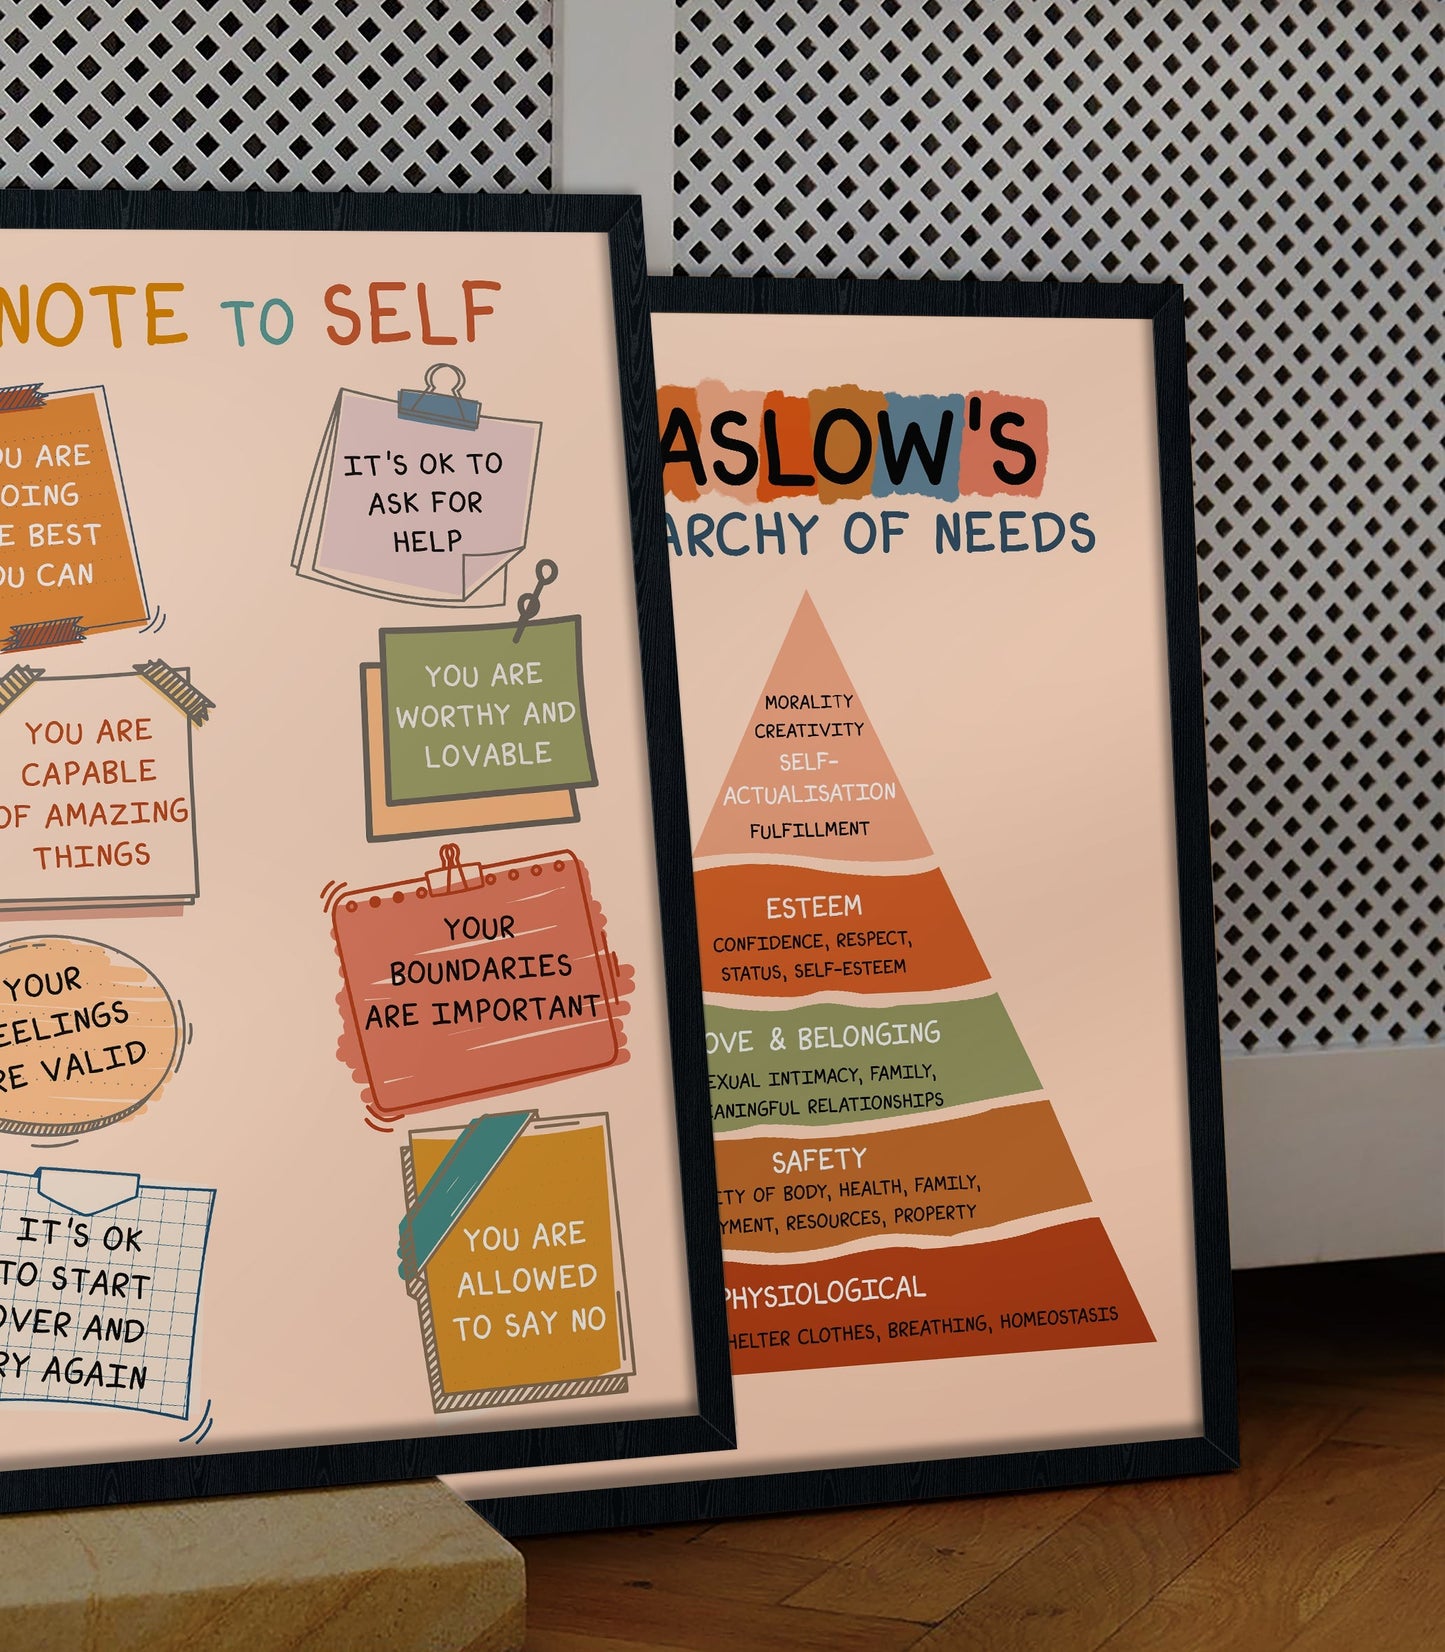 NOTE TO SELF
OU ARE
OING
E BEST
OU CAN
IT'S OK TO
ASK FOR
HELP
YOU ARE
CAPABLE
OF AMAZING
THINGS
YOU ARE
WORTHY AND
LOVABLE
YOUR
EELINGS
RE VALID
YOUR
BOUNDARIES
ARE IMPORTANT
IT'S OK
TO START
OVER AND
RY AGAIN
YOU ARE
ALLOWED
TO SAY NO
ASLOW'S
ARCHY OF NEEDS
MORALITY
CREATIVITY
SELF-
ACTUALISATION
FULFILLMENT
ESTEEM
CONFIDENCE, RESPECT,
STATUS, SELF-ESTEEM
OVE & BELONGING
EXUAL INTIMACY, FAMILY,
ANINGFUL RELATIONSHIPS
SAFETY
ITY OF BODY, HEALTH, FAMILY,
YMENT, RESOURCES, PROPERTY
PHYSIOLOGICAL
HELTER CLOTHES, BREATHING, HOMEOSTASIS